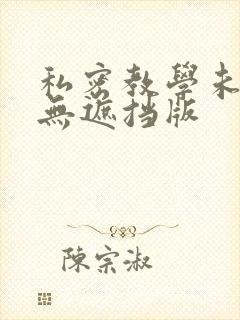 私密教學未
無遮挡版
陳宗淑